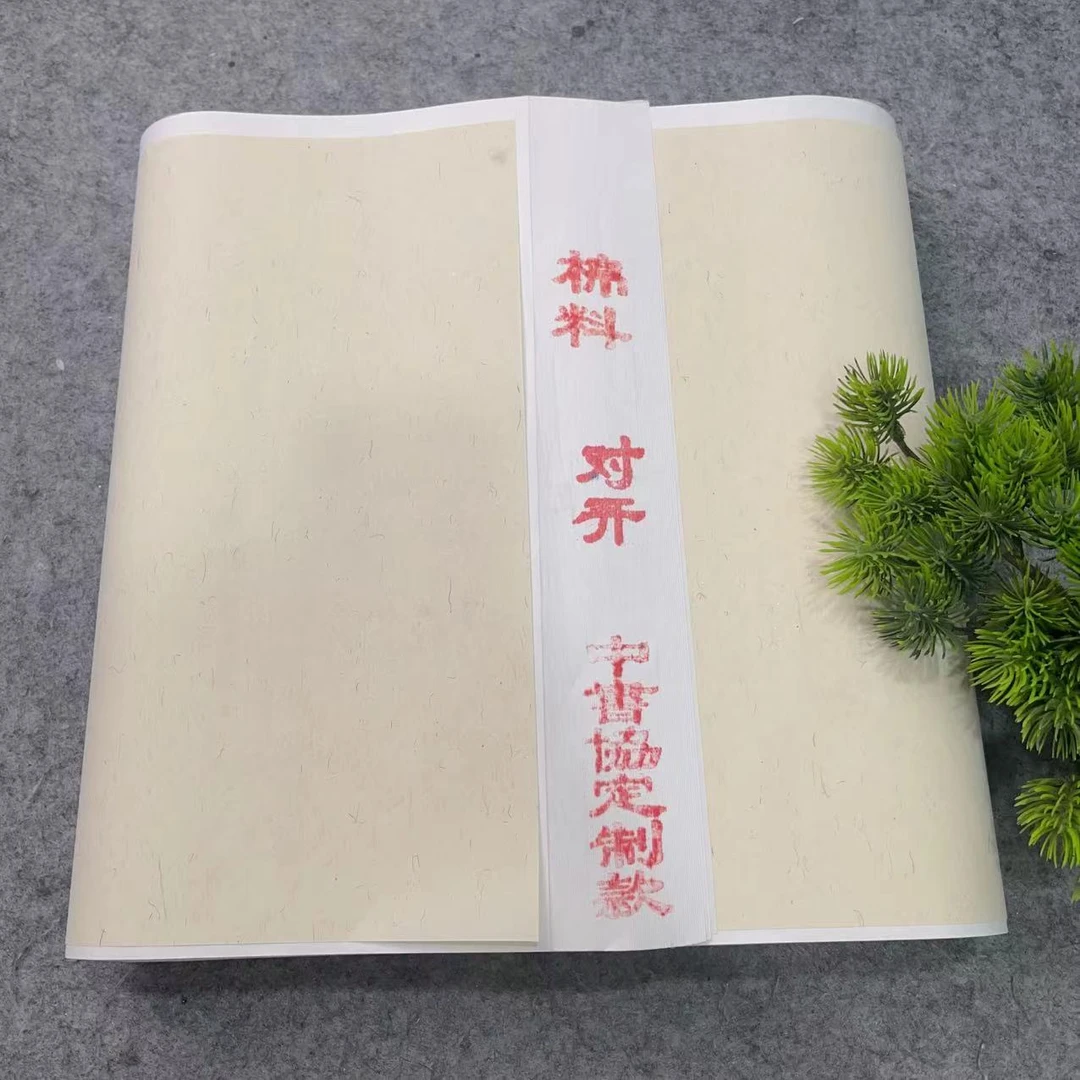 棉料
对开
中書協定制款